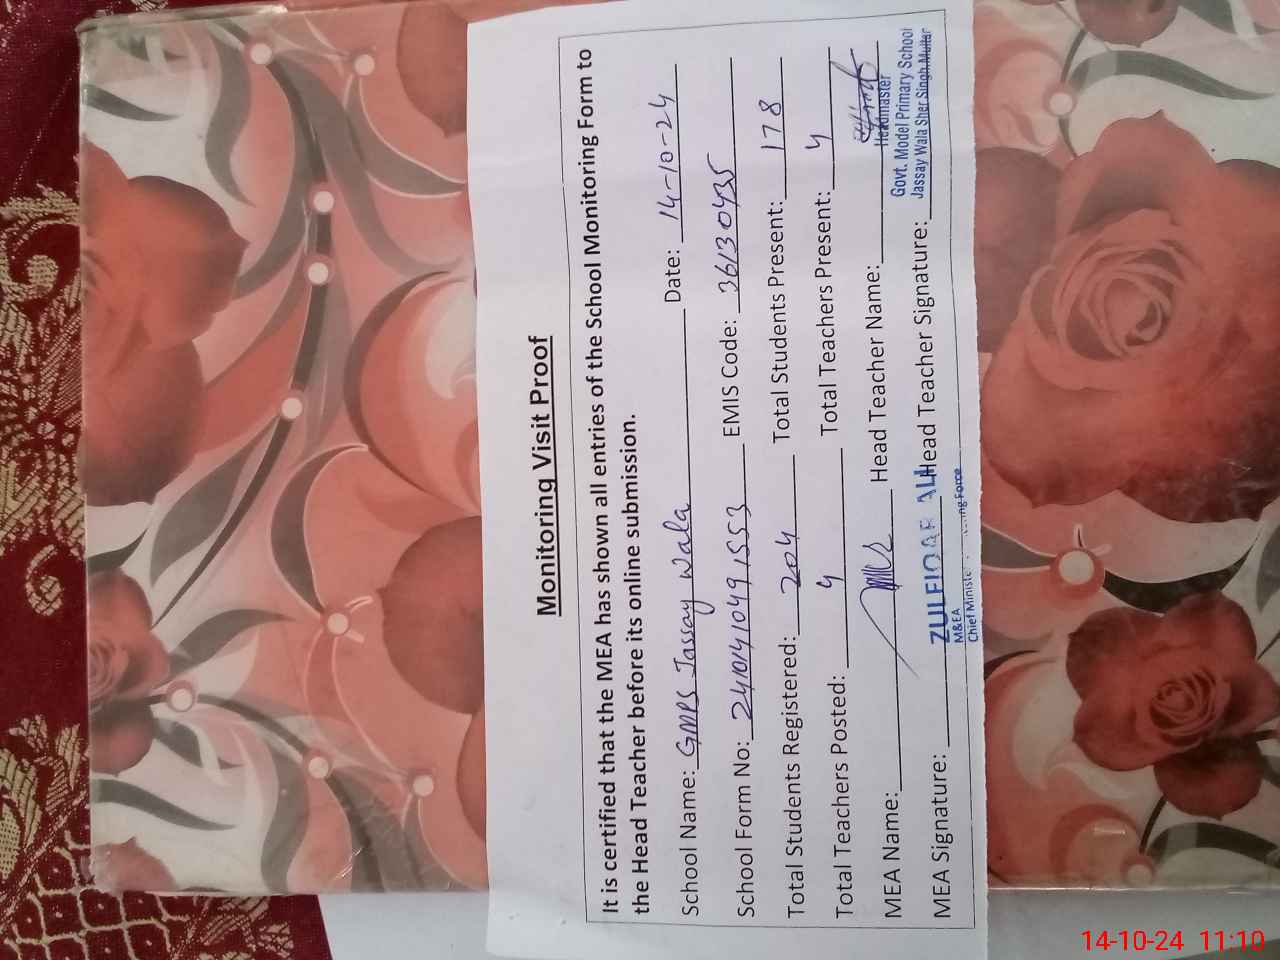 Monitoring Visit Proof
It is certified that the MEA has shown all entries of the School Monitoring Form to
the Head Teacher before its online submission.
School Name: GMPS Jassay Wala Date: 14-10-24
School Form No: 24101410491553 EMIS Code: 36130435
Total Students Registered: 204 Total Students Present: 178
Total Teachers Posted: 4 Total Teachers Present: 4
MEA Name: Head Teacher Name:
Headmaster
Govt. Model Primary School
Jassay Wala Sher Singh Multan
MEA Signature: Head Teacher Signature:
ZULFIQAR ALI
M&EA
Chief Force
14-10-24 11:10